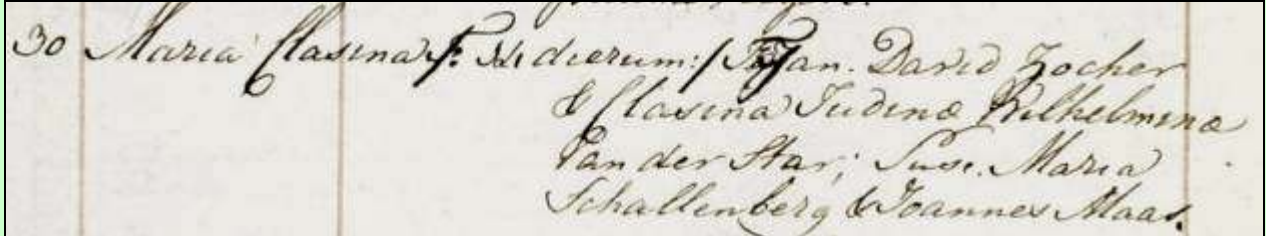 30 Maria Clasina /: dierum :/ Jan. David Zocher
& Clasina Judina Wilhelmina
van der Star; Susc. Maria
Schallenberg & Joannes Maas.